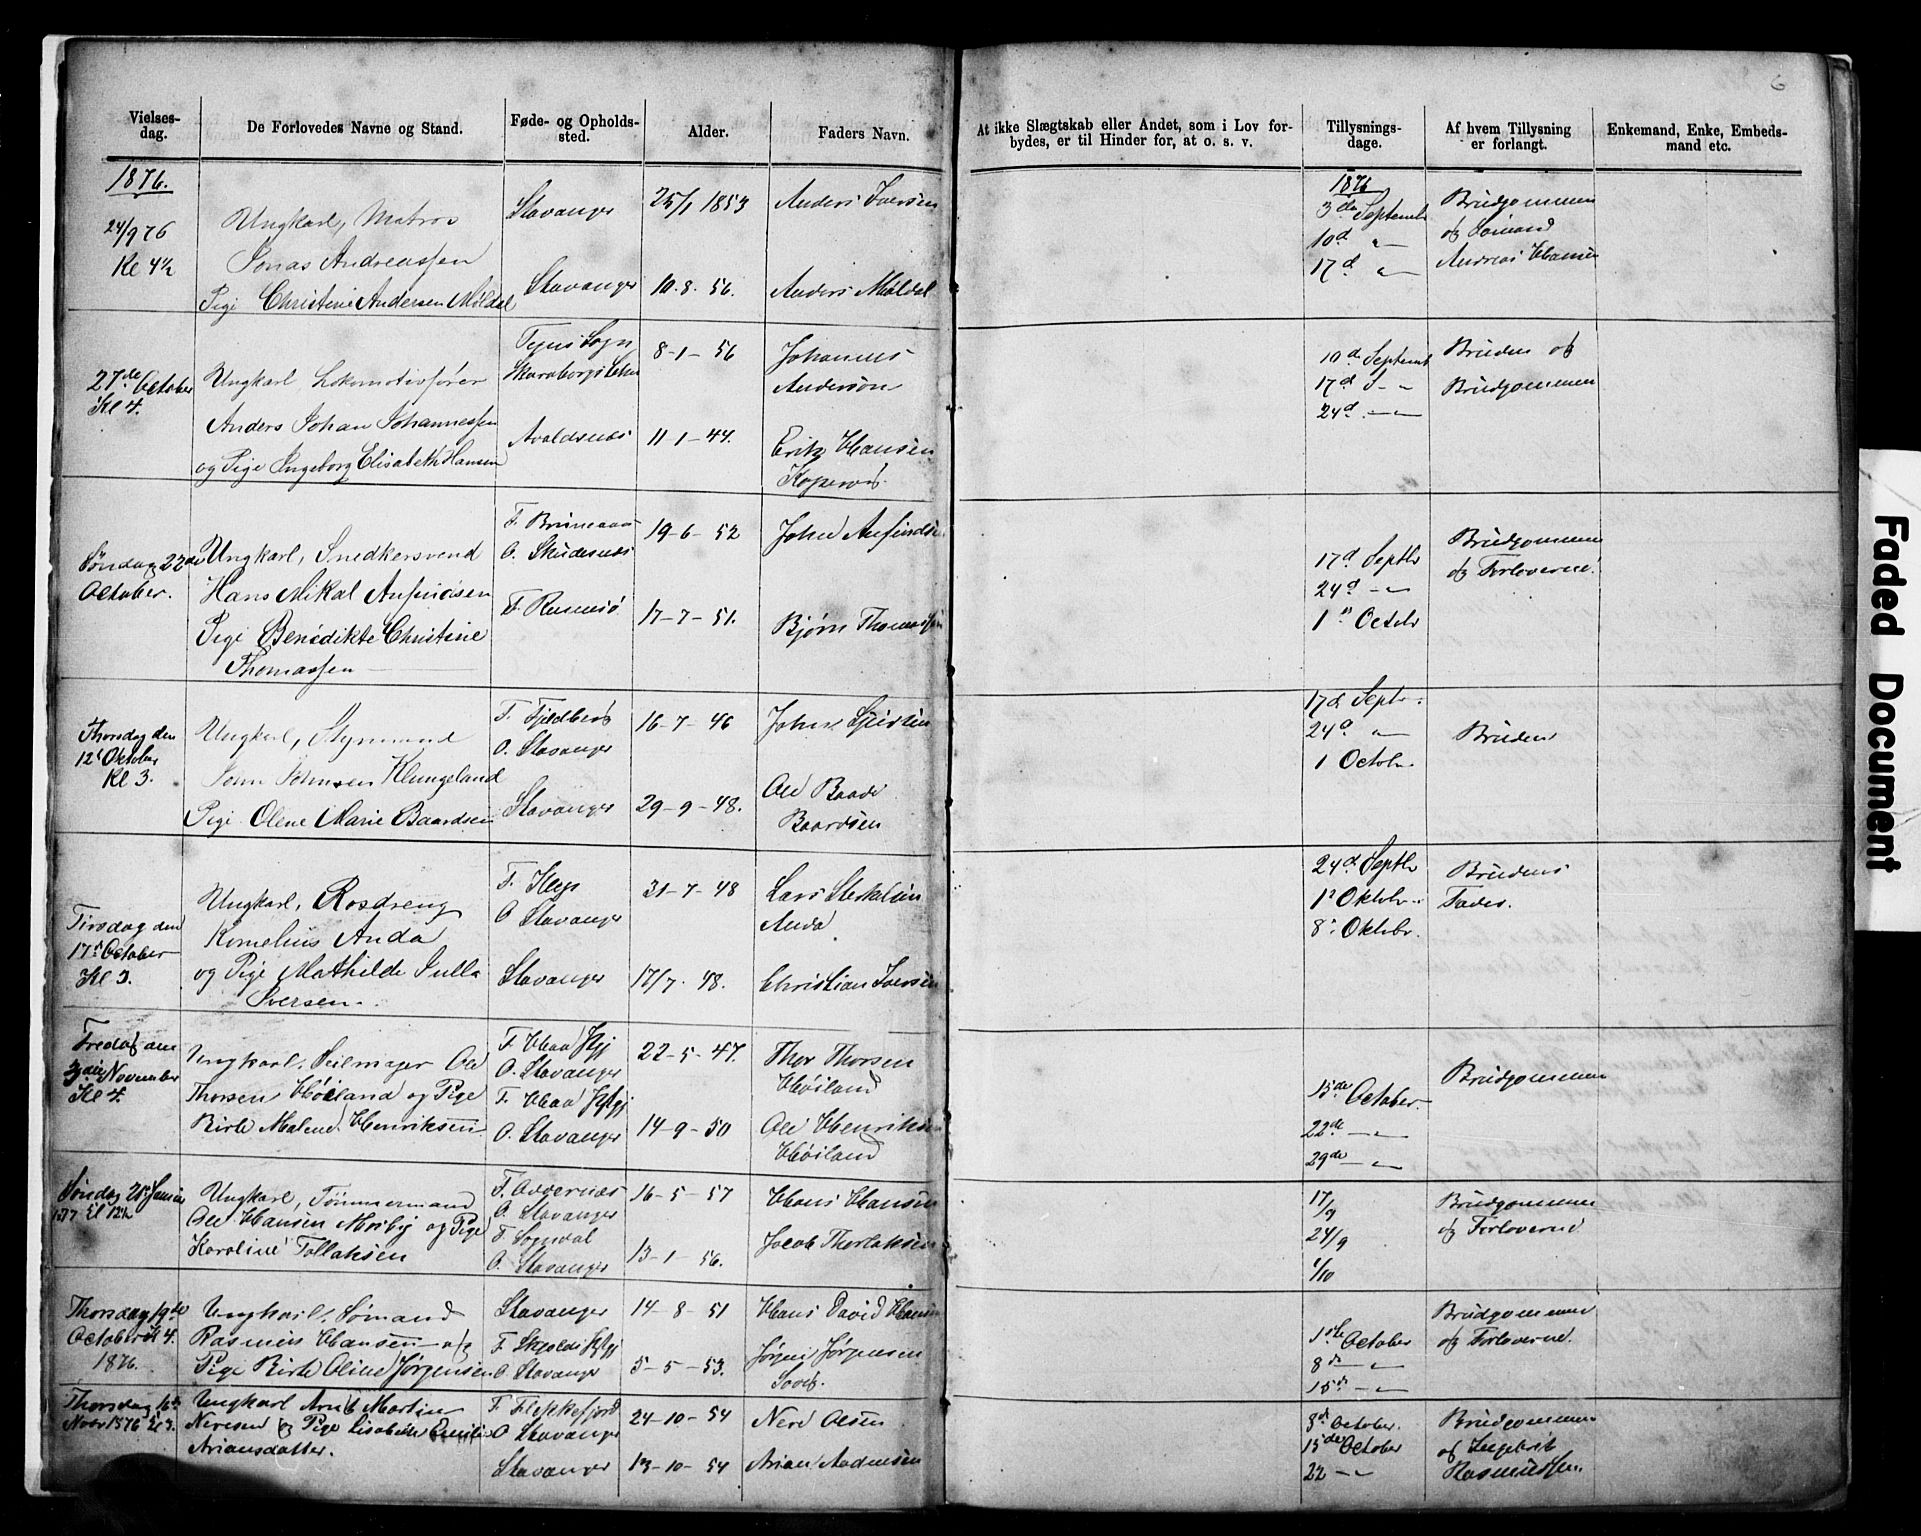 6
Vielses-
dag.
De Forlovedes Navne og Stand.
Føde- og Opholds-
sted.
Alder.
Faders Navn.
At ikke Slægtskab eller Andet, som i Lov for-
bydes, er til Hinder for, at o. s. v.
Tillysnings-
dage.
Af hvem Tillysning
er forlangt.
Enkemand, Enke, Embeds-
mand etc.
1876.
24/9 76
Kl 4½
Ungkarl, Matros
Jonas Andreassen
Pige Christine Andersen Møldal
Stavanger
Stavanger
25/1 1853
10-8-56.
Anders Iversen
Anders Møldal
1876
3de Septemb
10d "
17d "
Brudgommen
og Sømand
Andreas Hansen
27de October
Kl 4.
Ungkarl Lokomotivfører
Anders Johan Johannessen
og Pige Ingeborg Elisabeth Hansen
Sogn
Skaraborgs Lehn
Avaldsnæs
8-1-56
11-1-44.
Johannes
Anderson
Erik Hansen
Kopervik
10de Septemb
17d S- "
24d. - "
Bruden og
Brudgommen
Søndag 22de
October.
Ungkarl, Snedkersvend
Hans Mikal Anfindsen
Pige Benedikte Christine
Thomassen
F.
O. Skudesnæs
F. Rennesø
19-6-52
17-7-51.
John Anfindsen
Bjørn Thomassen
17d Septbr
24d - "
1s Octobr
Brudgommen
og Forloverne.
Thorsdag den
12t Oktober
Kl 3.
Ungkarl, Styrmand
John Johnsen Klungeland
Pige Olene Marie Baardsen
F. Fjeldberg
O. Stavanger
Stavanger
16-7-46
29-9-48.
John
Ole Baade
Baardsen
17d Septr.
24d "
1 Octobr
Bruden
Tirsdag den
17de October
Kl 3.
Ungkarl, Rosdreng
Kornelius Anda
og Pige Mathilde Julla
Iversen.
F. Klep
O Stavanger
Stavanger
31-7-48
17/7-48.
Lars
Anda
Christian Iversen
24d Septbr
1s Oktobr.
8s Oktobr.
Brudens
Fader.
Fredag den
3die November
Kl 4.
Ungkarl, Seilmager Ole
Thorsen Høiland og Pige
Birte Malene Henriksen
F. Haa
O. Stavanger
F. Haa
O. Stavanger
22-5-47.
14-9-50
Thor Thorsen
Høiland
Ole Henriksen
Høiland
15de October.
22de - "
29de - "
Brudgommen
Søndag Januar
1877 Kl 12½
Ungkarl, Tømmermand
Ole Hansen Mosby og Pige
Karoline Tollaksen
F.
O. Stavanger
F. Sogndal
O. Stavanger
16-5-57
13-1-56.
Hans Hansen
Jacob Thorlaksen
17/9
24/9
1/10
Brudgommen
og Forloverne
Thorsdag 19de
October Kl 4.
1876.
Ungkarl, Sømand
Rasmus Hansen og
Pige Birte Oline Jørgensen
Stavanger
F. Skjold
O Stavanger
14-8-51
5-5-53.
Hans David Hansen
Jørgen Jørgensen
1ste October
8de - "
15de - "
Brudgommen
og Forloverne.
Thorsdag 16de
Novbr 1876 Kl 3.
Ungkarl Arnt Martin
Neresen og Pige Lisabeth Emilie
Ariansdatter.
F. Flekkefjord
O Stavanger
Stavanger
24-10-54
13-10-54
Nere Olsen
Arian Andersen
8de October.
15de October
22 - "
Brudgommen
og Ingebrit
Rasmussen.
Faded Document